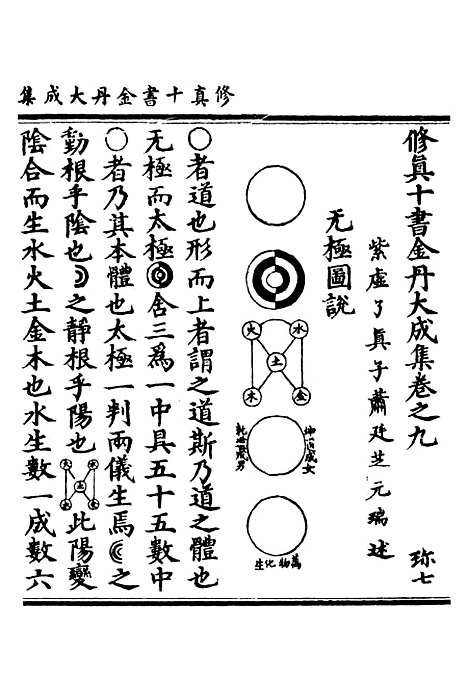 修真十書金丹大成集
修眞十書金丹大成集卷之九 珎七
紫虛了眞子蕭廷芝元瑞述
无極圖說
火 水
土
木 金
坤道成女
乾道成男
萬物化生
○者道也形而上者謂之道斯乃道之體也
无極而太極含三爲一中具五十五數中
○者乃其本體也太極一判兩儀生焉之
動根乎陰也之靜根乎陽也火水土木金此陽變
陰合而生水火土金木也水生數一成數六